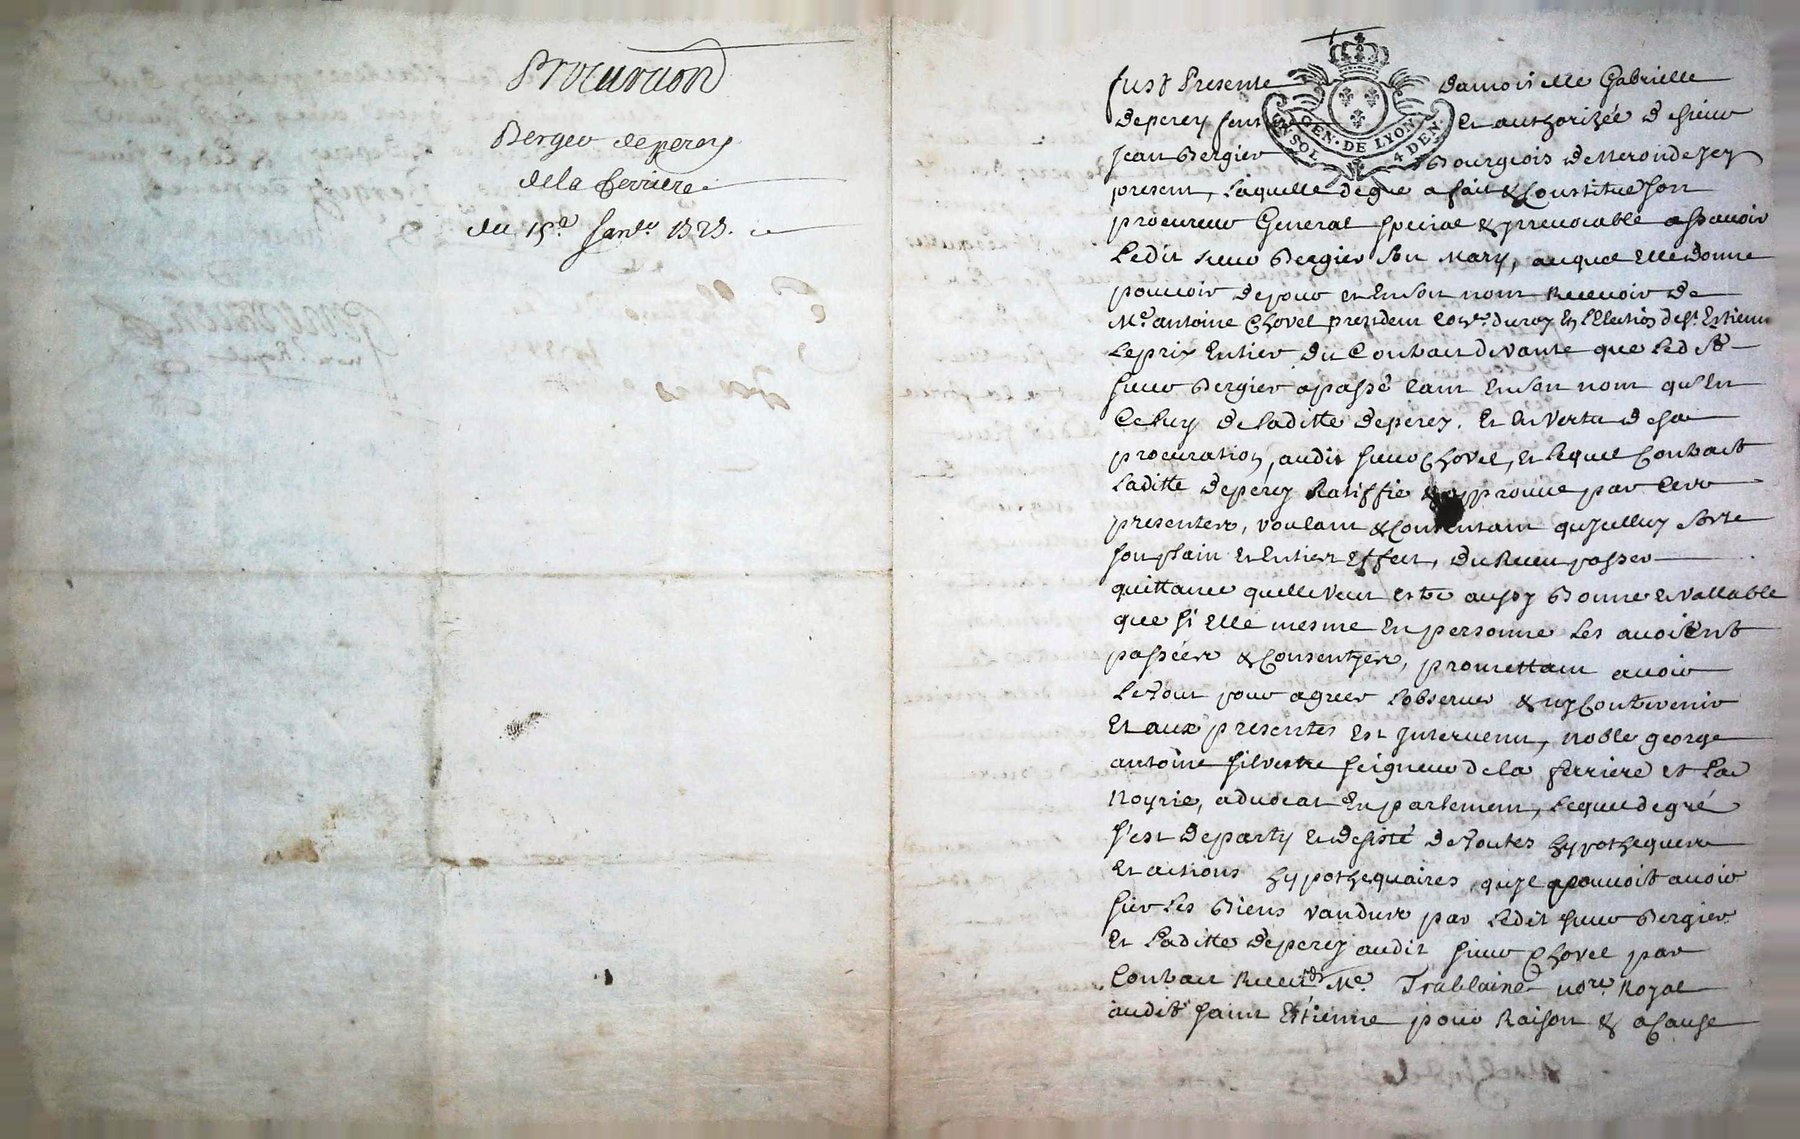 Procuration
Bergier deperey
de la ferriere
du 15e Janv.
fust Presente Damoiselle Gabrielle
GEN. DE LYON
SOL 4 DEN.
Deperey et authorisée de sieur
Jean Bergier Bourgeois de
present, Laquelle de gre a fait & Constitué son
procureur General special & yrrevocable assavoir
Ledit sieur Bergier son Mary, auquel Elle donne
pouvoir de pour et En son nom Recevoir de
Me. antoine Chovel president du roy En l'Election de st. Estienne
Le prix Entier du Contract de vante que Ledit
sieur Bergier a passé tant En son nom qu'En
Celluy de laditte deperey. Et En vertu de sa
procuration, audit sieur Chovel, et lequel Contract
Laditte deperey Ratiffie & approuve par Ces
presentes, voulant & Consentant qu'ycelluy sorte
son plain et Entier Effect, du Receu passer
quittance qu'elle veut estre aussy Bonne et vallable
que si Elle mesme En personne Les avoit
passées & Consenties, promettant avoir
Le tout pour agreer L'observer & n'y Contrevenir
Et aux presentes Est Intervenu, noble george
antoine silvestre seigneur de la ferriere et La
Noyrie, advocat En parlement, Lequel de gré
s'est departy et desisté de toutes hypotheques
Et actions hypothequaires qu'yl pouvoit avoir
sur Les Biens vandus par Ledit sieur Bergier
Et Laditte deperey audit sieur Chovel par
Contract Receu Me. Trablaine nore. Royal
audit saint Estienne pour Raison & a Cause